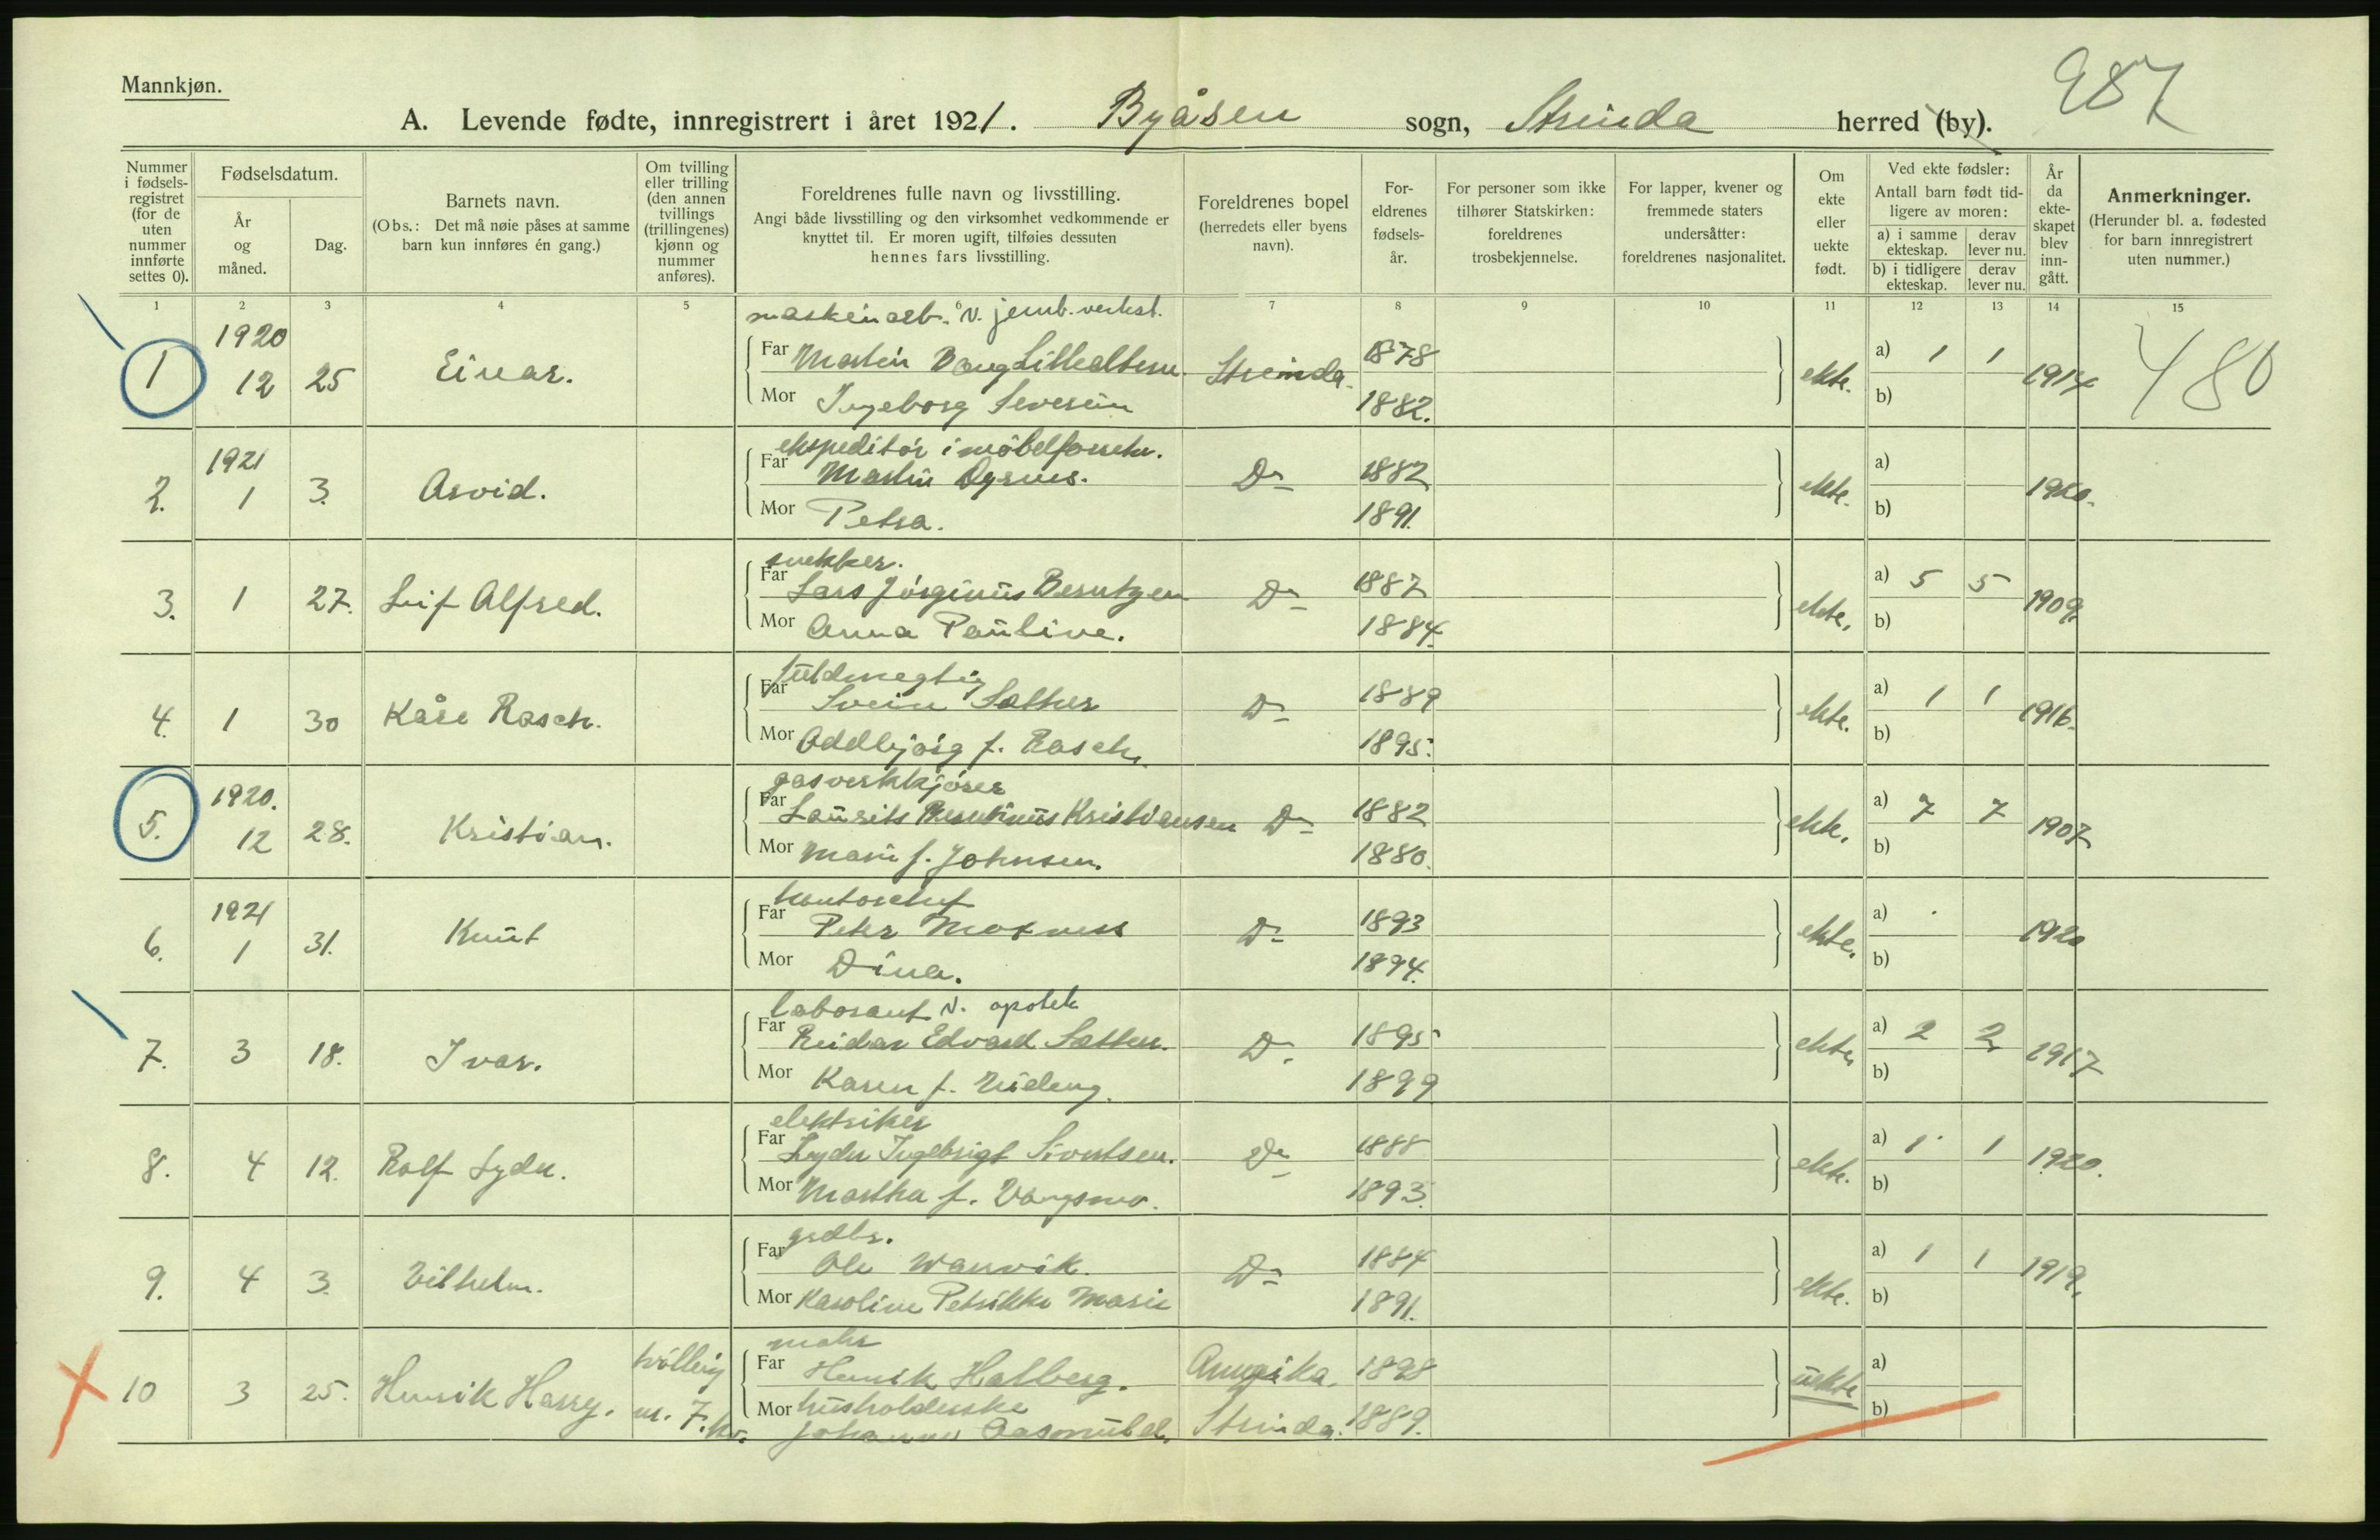 987
Mannkjøn.
A. Levende fødte, innregistrert i året 1921. Byåsen sogn, Strinda herred (by).
Nummer i fødselsregistret (for de uten nummer innførte settes 0).
Fødselsdatum.
År og måned.
Dag.
Barnets navn.
(Obs.: Det må nøie påses at samme barn kun innføres én gang.)
Om tvilling eller trilling (den annen tvillings (trillingenes) kjønn og nummer anføres).
Foreldrenes fulle navn og livsstilling.
Angi både livsstilling og den virksomhet vedkommende er knyttet til. Er moren ugift, tilføies dessuten hennes fars livsstilling.
Foreldrenes bopel (herredets eller byens navn).
Foreldrenes fødselsår.
For personer som ikke tilhører Statskirken: foreldrenes trosbekjennelse.
For lapper, kvener og fremmede staters undersåtter: foreldrenes nasjonalitet.
Om ekte eller uekte født.
Ved ekte fødsler: Antall barn født tidligere av moren:
a) i samme ekteskap. derav lever nu.
b) i tidligere ekteskap. derav lever nu.
År da ekteskapet blev inngått.
Anmerkninger.
(Herunder bl. a. fødested for barn innregistrert uten nummer.)
1 2 3 4 5 7 8 9 10 11 12 13 14 15
maskinarb. v. jernb. verkst.
1 1920 12 25 Einar. Far Martin Strinda 1878 ekte. a) 1 1 1914 480
Mor Ingeborg Severin 1882. b)
ekspeditör i möbelforretn.
2. 1921 1 3. Arvid. Far Martin D° 1882 ekte. a) 1920.
Mor Petra. 1891. b)
snekker.
3. 1 27. Leif Alfred. Far Lars Jörginus Berntzen D° 1887 ekte. a) 5 5 1909.
Mor Anna Pauline. 1884. b)
fuldmegtig
4. 1 30 Kåre Rasch. Far Svein Sæther D° 1889 ekte. a) 1 1 1916.
Mor Oddbjörg f. Rasch. 1895. b)
gasverkkjörer
5. 1920. 12 28. Kristian. Far Laurits Kristiansen D° 1882 ekte. a) 7 7 1907.
Mor Marie f. Johnsen. 1880. b)
kontorchef
6. 1921 1 31. Knut Far Peter Moxness D° 1893 ekte. a) 1920
Mor Dina. 1894. b)
laborant v. apotek
7. 3 18. Ivar. Far Reidar Edvard Sæther. D° 1895 ekte. a) 2 2 1917
Mor Karen f. 1899 b)
elektriker
8. 4 12. Rolf Lyder. Far Lyder Ingebrigt Sivertsen. D° 1888 ekte. a) 1 1 1920.
Mor Martha f. Vangsmo. 1893. b)
grdbr.
9. 4 3. Vilhelm. Far Ole Wanvik. D° 1884 ekte. a) 1 1 1919.
Mor Karoline Petrikke Marie 1891. b)
maler
10 3 25. Henrik Harry. tvilling nr. 7. kv. Far Henrik Halberg. Amerika. 1898 uekte a)
Mor husholderske
Johanne Strinda. 1889. b)